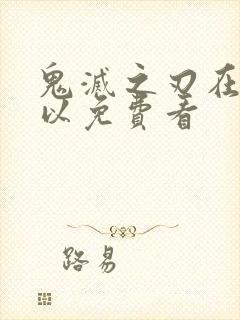 鬼滅之刃在
以免費看
路易